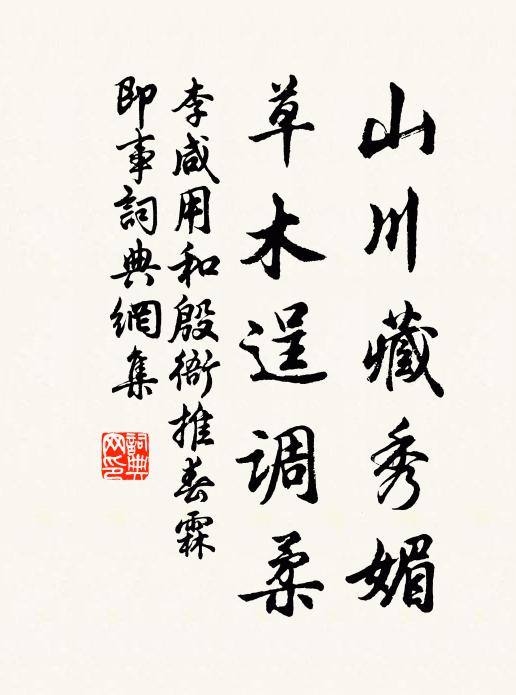 山川藏秀媚
草木逞調柔
李咸用和殷衙推春霖
即事詞典網集
詞典網印